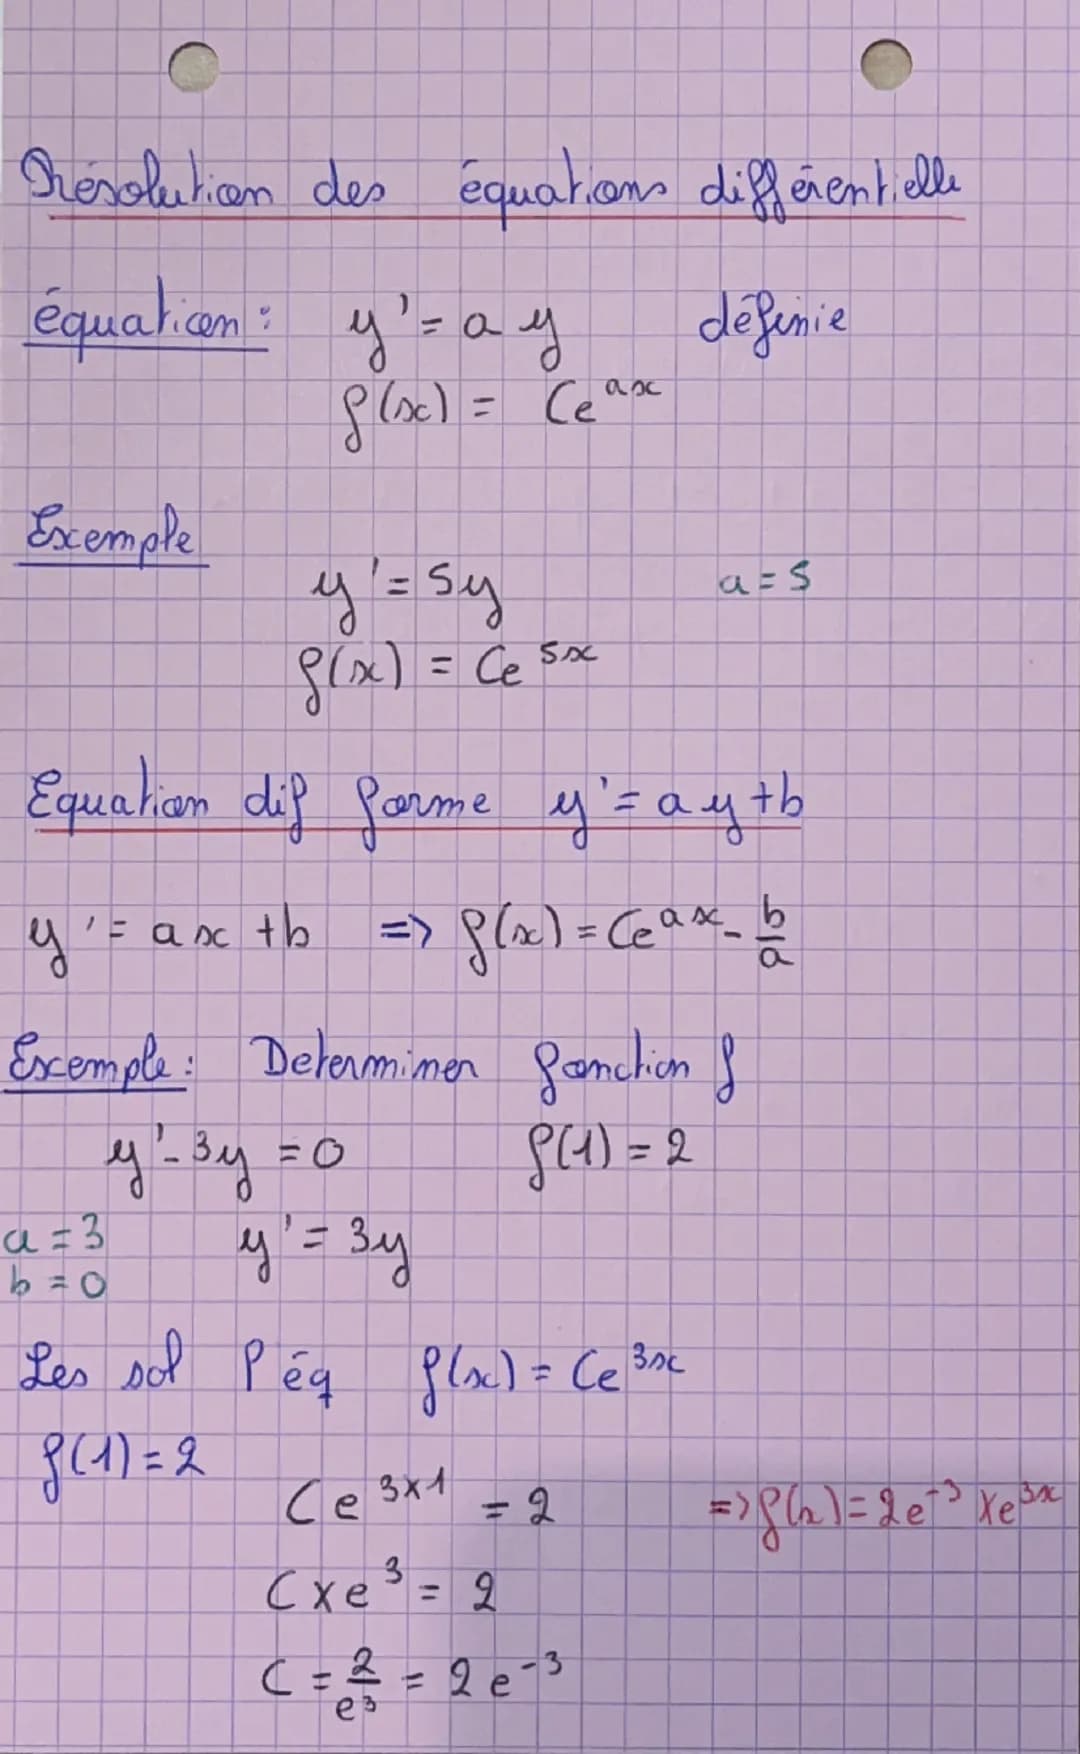 Résolution des équations différentielle
équation : y' = ay définie
f(x) = Ce^ax
Exemple
y' = 5y a = 5
f(x) = Ce^5x
Equation dif forme y' = ay + b
y' = ax + b => f(x) = Ce^ax - b/a
Exemple : Determiner fonction f
y' - 3y = 0 f(1) = 2
a = 3 y' = 3y
b = 0
Les sol l éq f(x) = Ce^3x
f(1) = 2
Ce^3×1 = 2 => f(x) = 2e^-3 × e^3x
C × e^3 = 2
C = 2/e^3 = 2e^-3